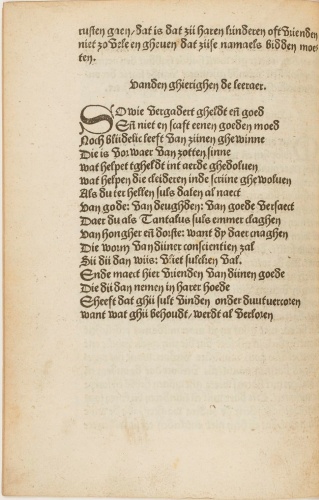 rusten gaen/dat is dat zii haren kinderen oft vrienden
niet zo vele en gheuen dat ziise namaels bidden moe-
ten.
Vanden ghierighen de leeraer.
SO wie vergadert gheldt eñ goed
Eñ niet en scaft eenen goeden moed
Noch blidelic leeft van ziinen ghewinne
Die is vorwaer van zotten sinne
wat helpet tgheldt int aerde ghedoluen
wat helpen die cleideren inde scriine ghewoluen
Als du ter hellen suls dalen al naect
van gode: van deughden: van goede versaect
Daer du als Tantalus suls emmer claghen
van hongher eñ dorste: want dp daer cnaghen
Die worm van diiner conscientien zal
Sii dii dan wiis: vliet sulcken val.
Ende maect hier vrienden van diinen goede
Die dii dan nemen in harer hoede
Sheeft dat ghii sult vinden onder duutvercoren
want wat ghii behoudt/werdt al verloren